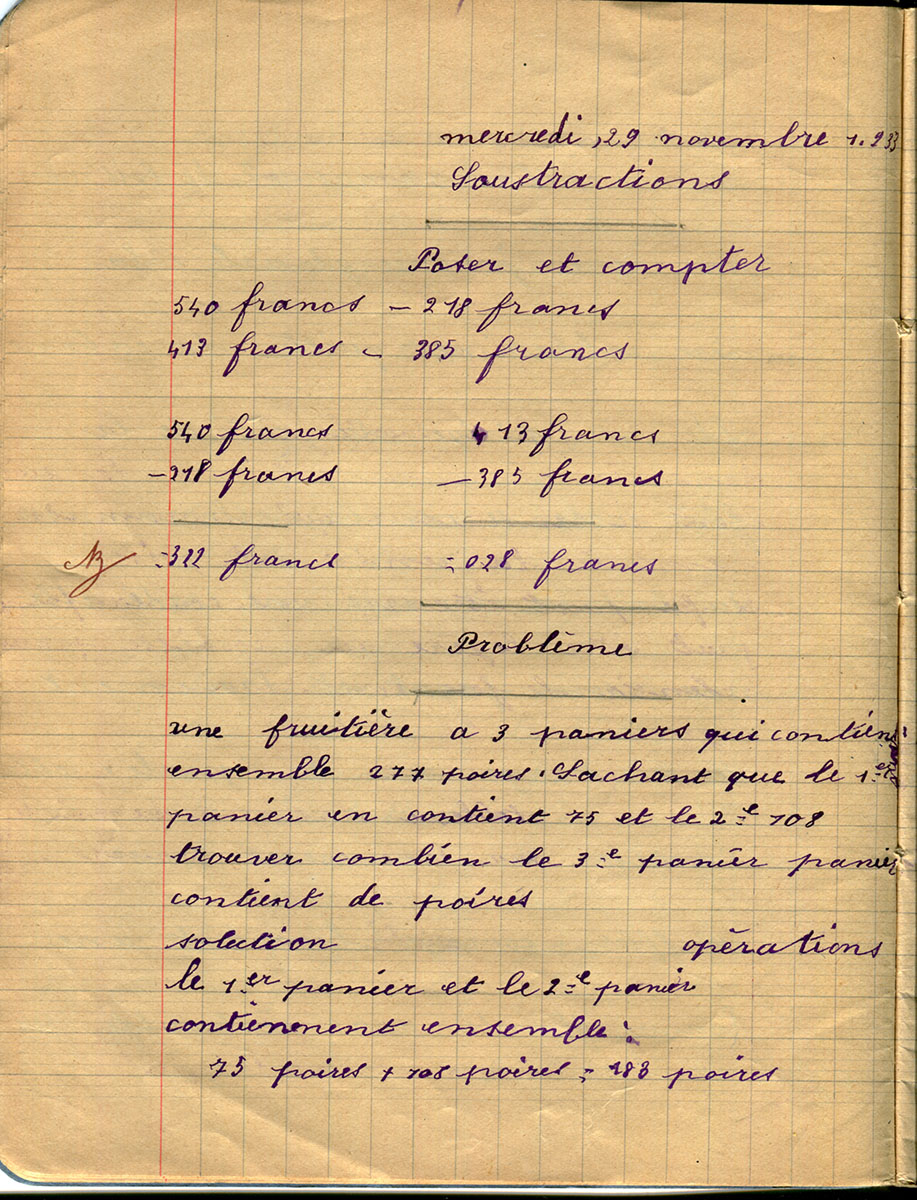 mercredi, 29 novembre 1.933
Soustractions
Poser et compter
540 francs - 218 francs
413 francs - 385 francs
540 francs 413 francs
-218 francs -385 francs
=322 francs =028 francs
Problème
une fruitière a 3 paniers qui contien
ensemble 277 poires. Sachant que le 1er
panier en contient 75 et le 2e 108
trouver combien le 3e panier panier
contient de poires
solution opèrations
le 1er panier et le 2e panier
contienement ensemble :
75 poires + 108 poires = 183 poires